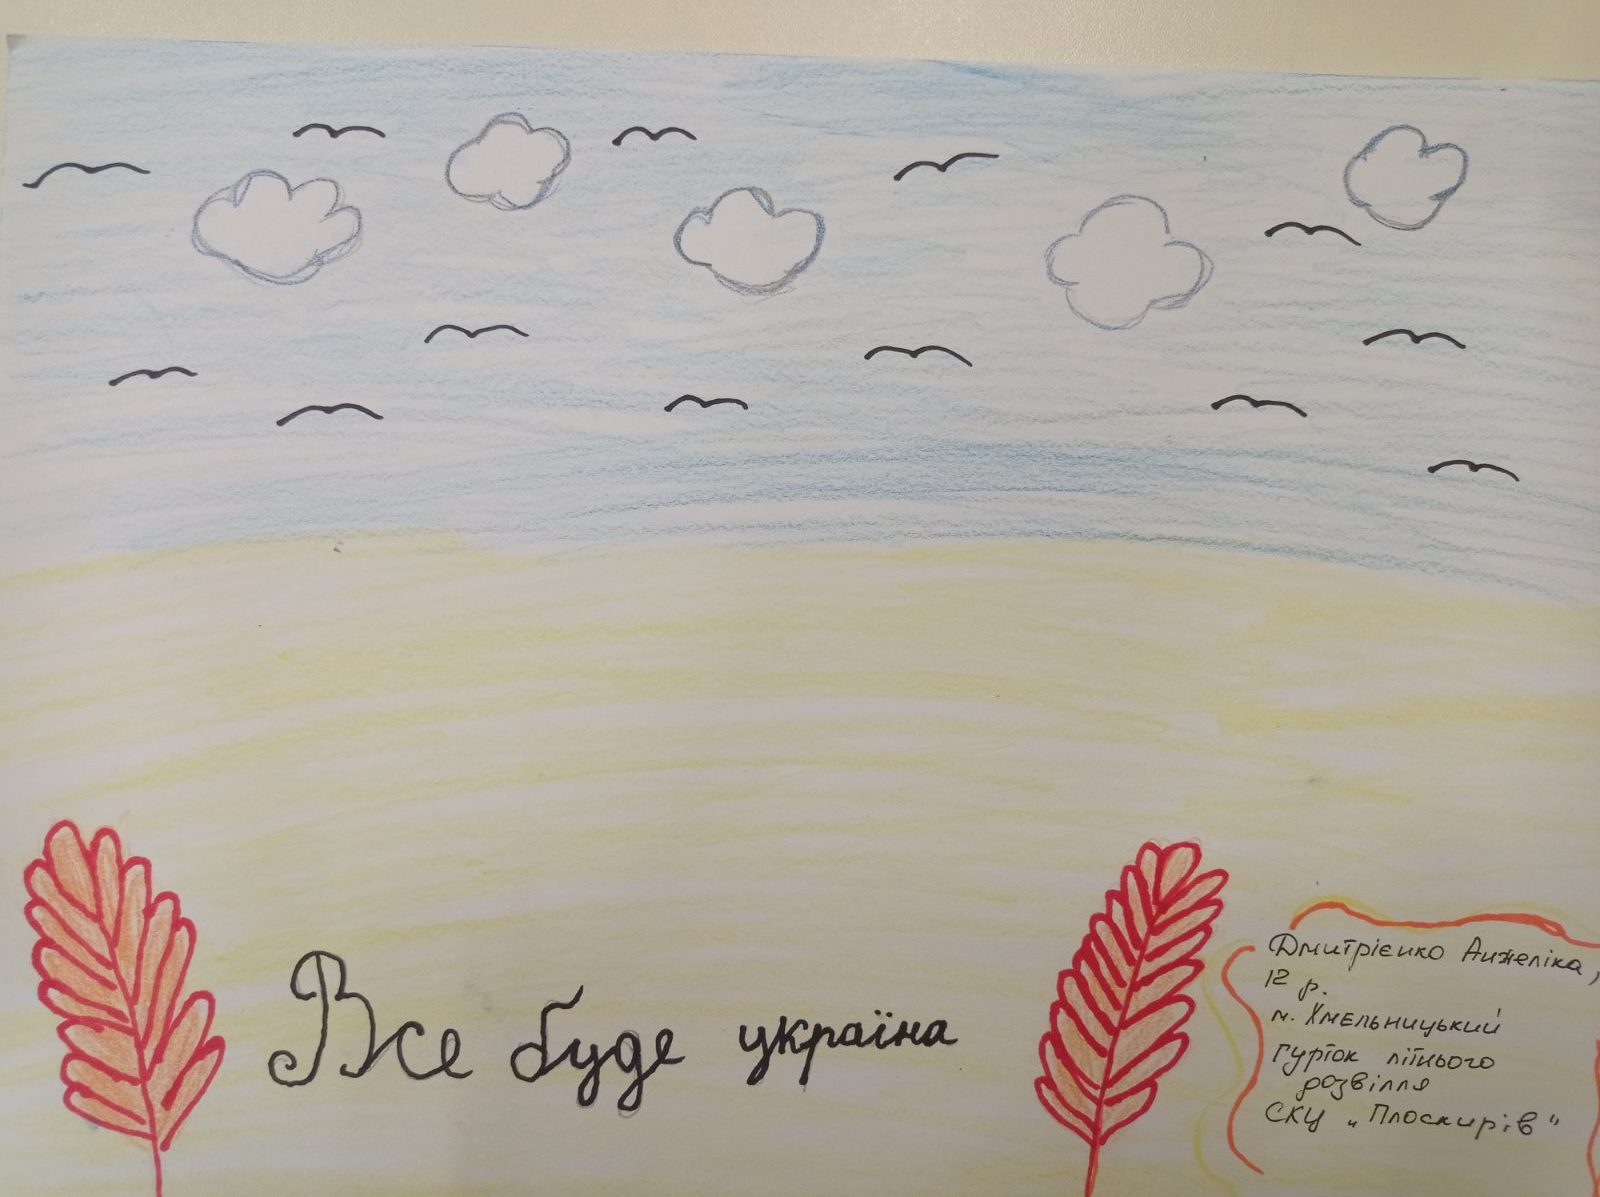 Все буде україна
Дмитрієнко Анжеліка,
12 р.
м. Хмельницький
Гурток літнього
розвілля
СКЦ „Плоскирів"